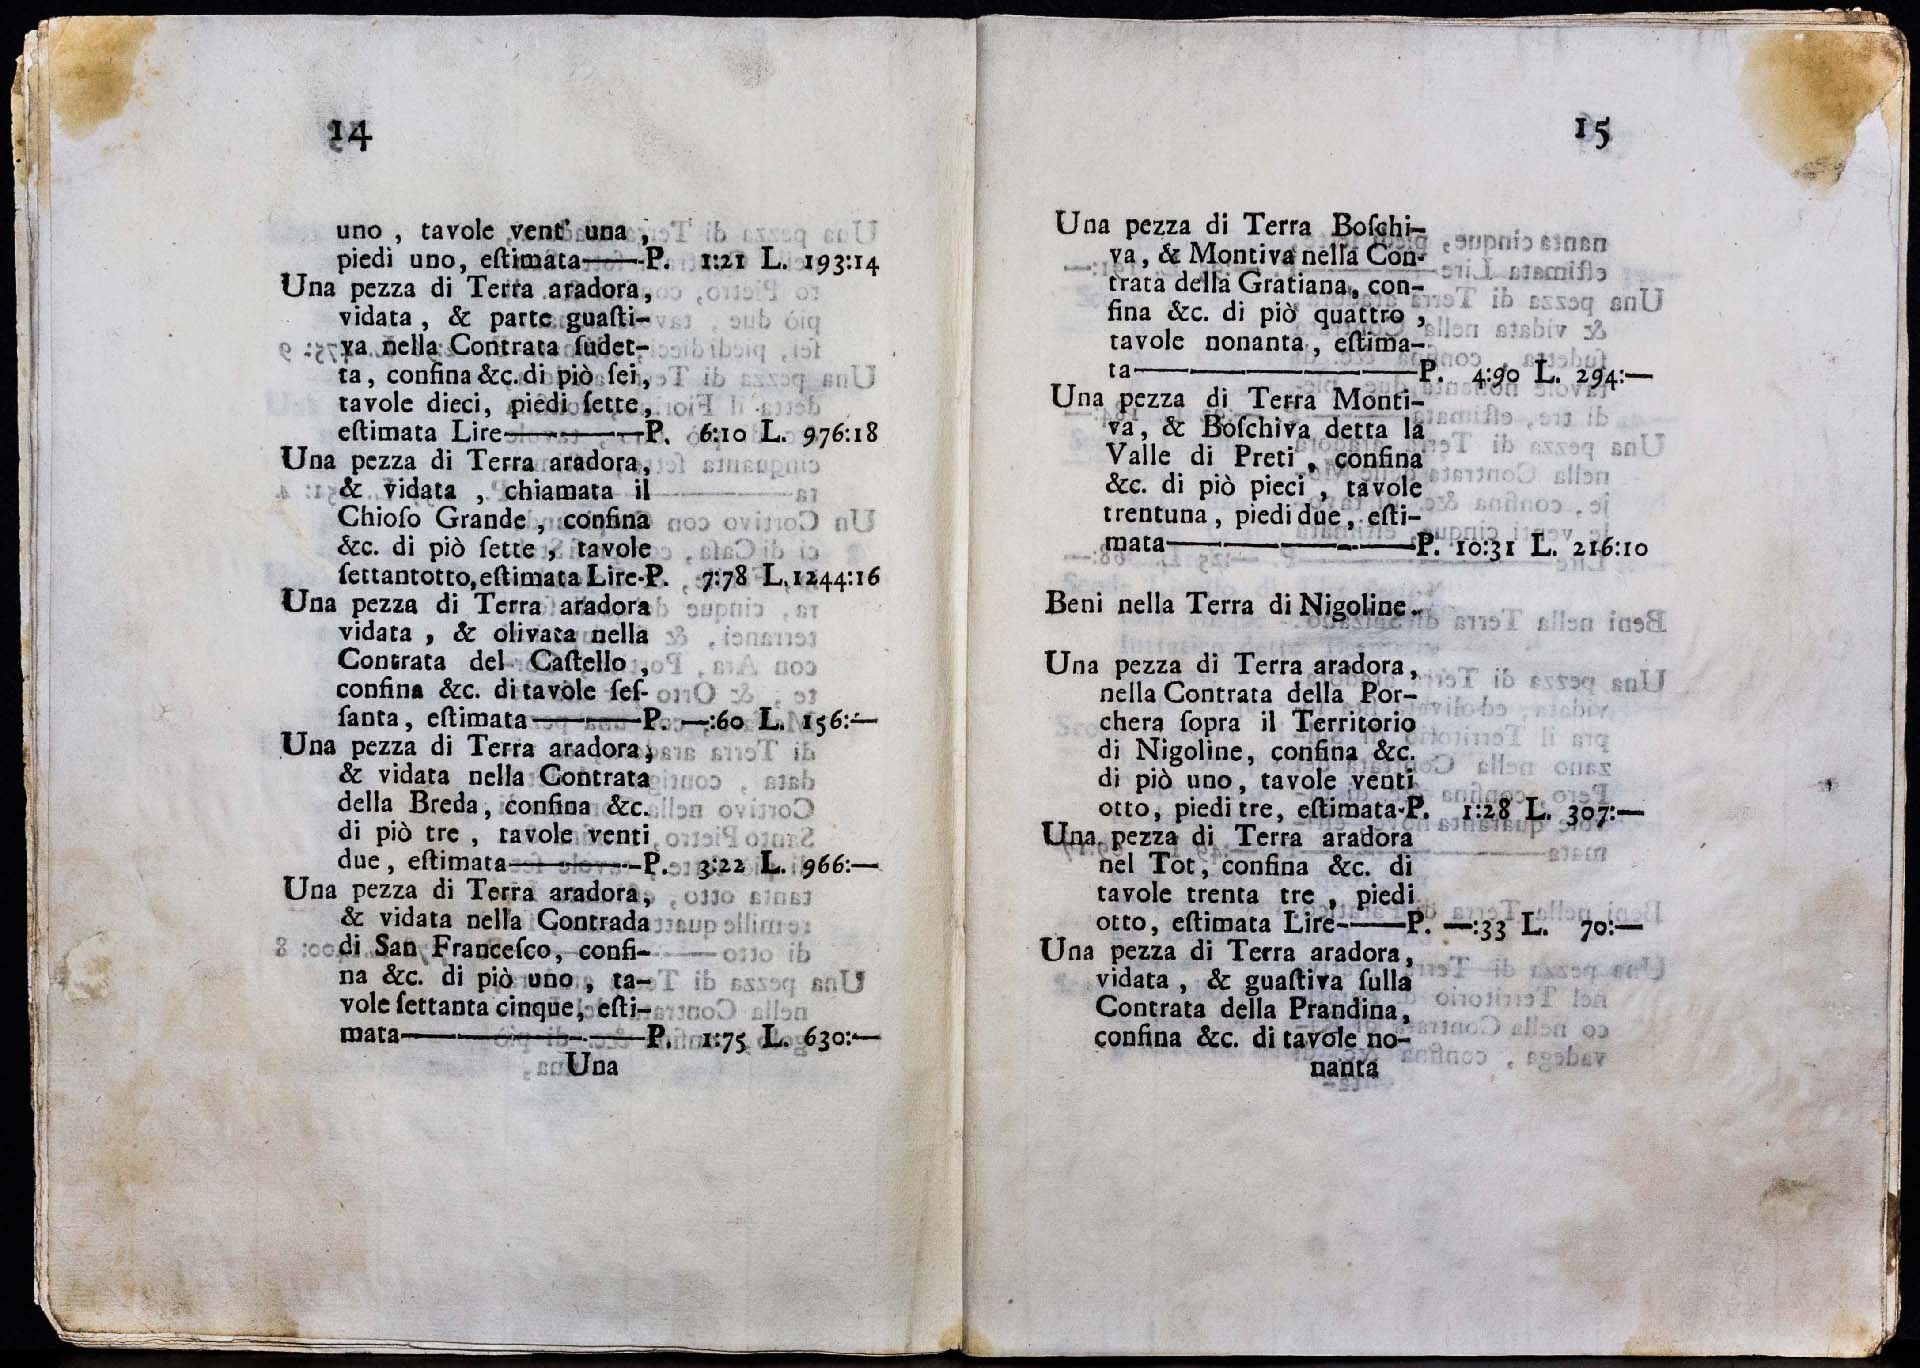 14
uno , tavole vent' una ,
piedi uno, eſtimata——-P. 1:21 L. 193:14
Una pezza di Terra aradora,
vidata , & parte guaſti-
va nella Contrata ſudet-
ta, confina &c. di piò ſei,
tavole dieci, piedi ſette,
eſtimata Lire—————P. 6:10 L. 976:18
Una pezza di Terra aradora,
& vidata , chiamata il
Chioſo Grande , confina
&c. di piò ſette , tavole
ſettantotto, eſtimata Lire-P. 7:78 L. 1244:16
Una pezza di Terra aradora
vidata , & olivata nella
Contrata del Caſtello ,
confina &c. di tavole ſeſ-
ſanta, eſtimata————P. —:60 L. 156:—
Una pezza di Terra aradora,
& vidata nella Contrata
della Breda, confina &c.
di piò tre , tavole venti
due, eſtimata—————-P. 3:22 L. 966:—
Una pezza di Terra aradora,
& vidata nella Contrada
di San Franceſco, confi-
na &c. di piò uno , ta-
vole ſettanta cinque, eſti-
mata——————————P. 1:75 L. 630:—
Una
15
Una pezza di Terra Boſchi-
va, & Montiva nella Con-
trata della Gratiana, con-
fina &c. di piò quattro ,
tavole nonanta , eſtima-
ta———————————P. 4:90 L. 294:—
Una pezza di Terra Monti-
va, & Boſchiva detta la
Valle di Preti , confina
&c. di piò pieci , tavole
trentuna, piedi due, eſti-
mata——————————P. 10:31 L. 216:10
Beni nella Terra di Nigoline.
Una pezza di Terra aradora,
nella Contrata della Por-
chera ſopra il Territorio
di Nigoline, confina &c.
di piò uno, tavole venti
otto, piedi tre, eſtimata-P. 1:28 L. 307:—
Una pezza di Terra aradora
nel Tot, confina &c. di
tavole trenta tre, piedi
otto, eſtimata Lire-——P. —:33 L. 70:—
Una pezza di Terra aradora,
vidata , & guaſtiva ſulla
Contrata della Prandina,
confina &c. di tavole no-
nanta